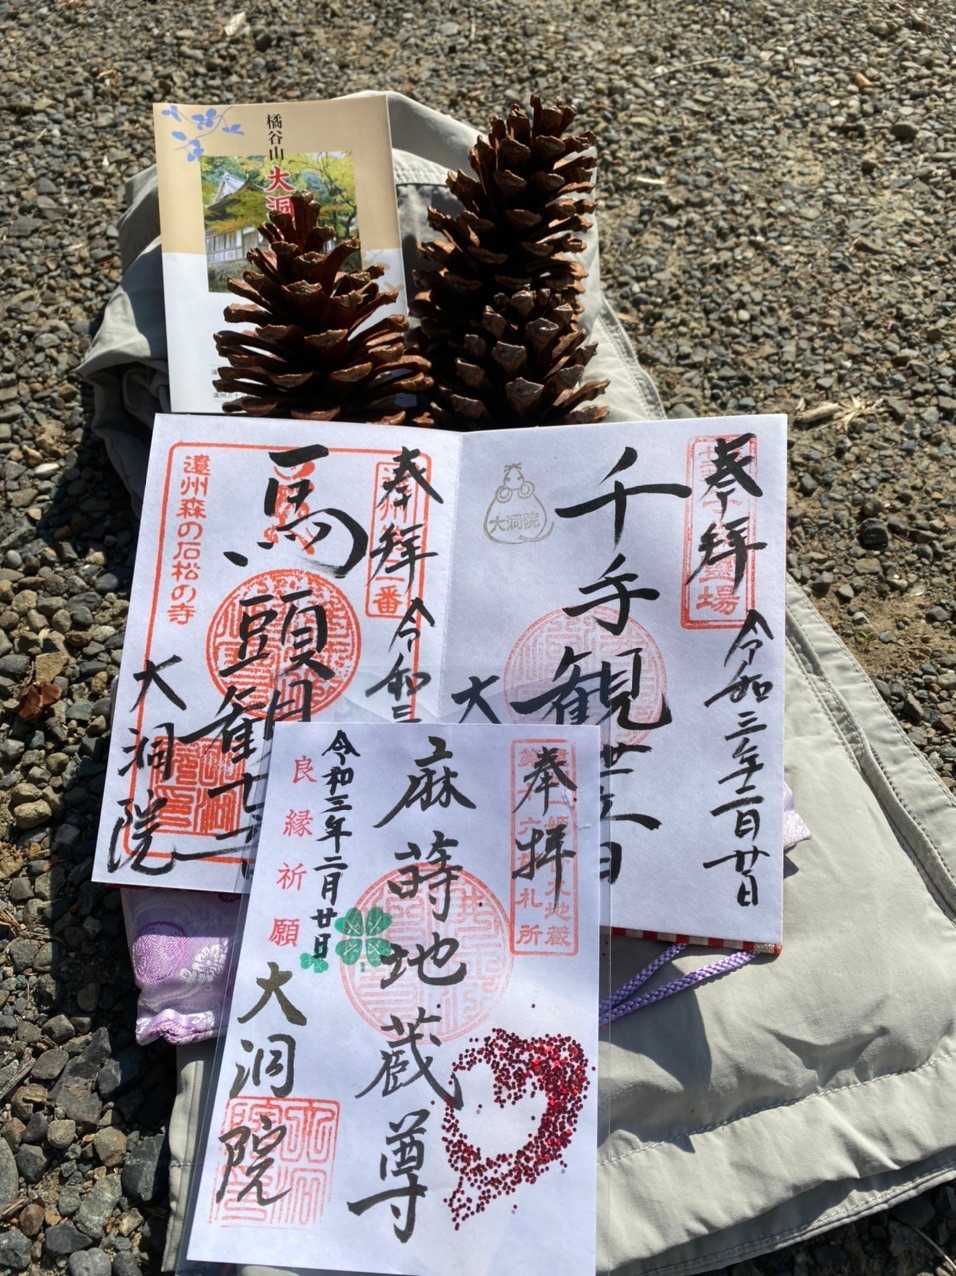 橘谷山
大洞
奉拝
千手観
令和三年二月廿日
大
大洞院
奉拝
一番
令和三
馬頭観
遠州森の石松の寺
大洞院
奉拝
札所
麻蒔地蔵尊
令和三年二月廿日
良縁祈願
大洞院